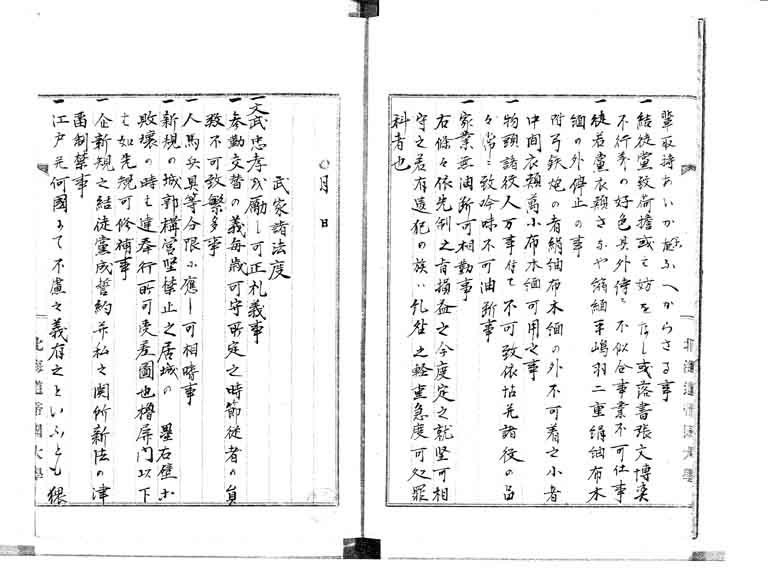 輩取持あいか□ふへからさる事
一結徒黨致荷擔或ハ妨をなし或落書張文博奕
不行季の好色其外侍ニ不似合事業不可仕事
一徒若黨衣類さや縮緬平嶋羽二重絹紬布木
綿の外停止の事
附弓鉄炮の者絹紬布木綿の外不可着之小者
中間衣類萬小布木綿可用之事
一物頭諸役人万事付て不可致依怙并諸役の品
々常ニ致吟味不可油断事
一家業無油断可相勤事
右條々依先例之旨損益之今度定之就堅可相
守之若有違犯の族ハ糺罪之軽重急度可処罪
科者也
月日
武家諸法度
一文武忠孝を励し可正礼義事
一参勤交替の義毎歳可守所定之時節従者の員
数不可致繁多事
一人馬兵具等分限に應し可相嗜事
一新規の城郭構営堅禁止之居城の壘石壁等
敗壞の時ハ達奉行所可受差圖也櫓屏門以下
ハ如先規可修補事
一企新規之結徒黨成誓約并私之関所新法の津
留制禁事
一江戸并何國にて不慮之義有之といふとも猥
北海道帝國大學
北海道帝國大學